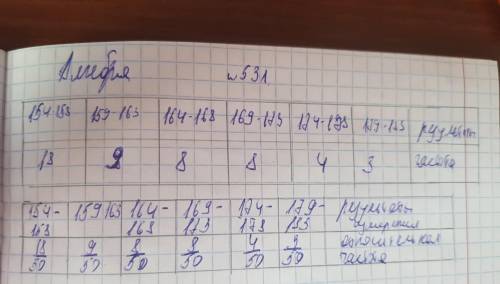 Алгебра №531.
154-158 159-163 164-168 169-173 174-178 179-183 результ
18 9 8 8 4 3 частота
154- 159 163 164- 169- 174- 179- результ
158 168 173 178 183 измерения
18/50 9/50 8/50 8/50 4/50 3/50 относительная
частота